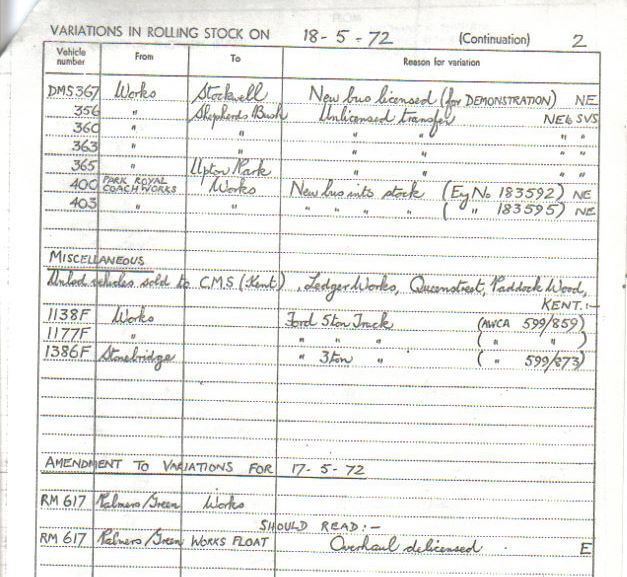 VARIATIONS IN ROLLING STOCK ON 18-5-72 (Continuation) 2
Vehicle number From To Reason for variation
DMS367 Works Stockwell New bus licensed (for DEMONSTRATION) NE
356 " Shepherds Bush Unlicensed transfer NE6 SVS
360 " " " " " "
363 " " " " " "
365 " Upton Park " " " "
400 PARK ROYAL COACHWORKS Works New bus into stock (Eng No 183592) NE
403 " " " " " " ( " 183595) NE
MISCELLANEOUS
vehicles sold to C.M.S (Kent), Ledger Works, Queenstreet, Paddock Wood,
KENT:-
1138F Works Ford 5ton Truck (AWCA 599/859)
1177F " " " " ( " " )
1386F Stonebridge " 3ton " ( " 599/873)
AMENDMENT TO VARIATIONS FOR 17-5-72
RM 617 Palmers/Green Works
SHOULD READ:-
RM 617 Palmers/Green WORKS FLOAT Overhaul delicensed E